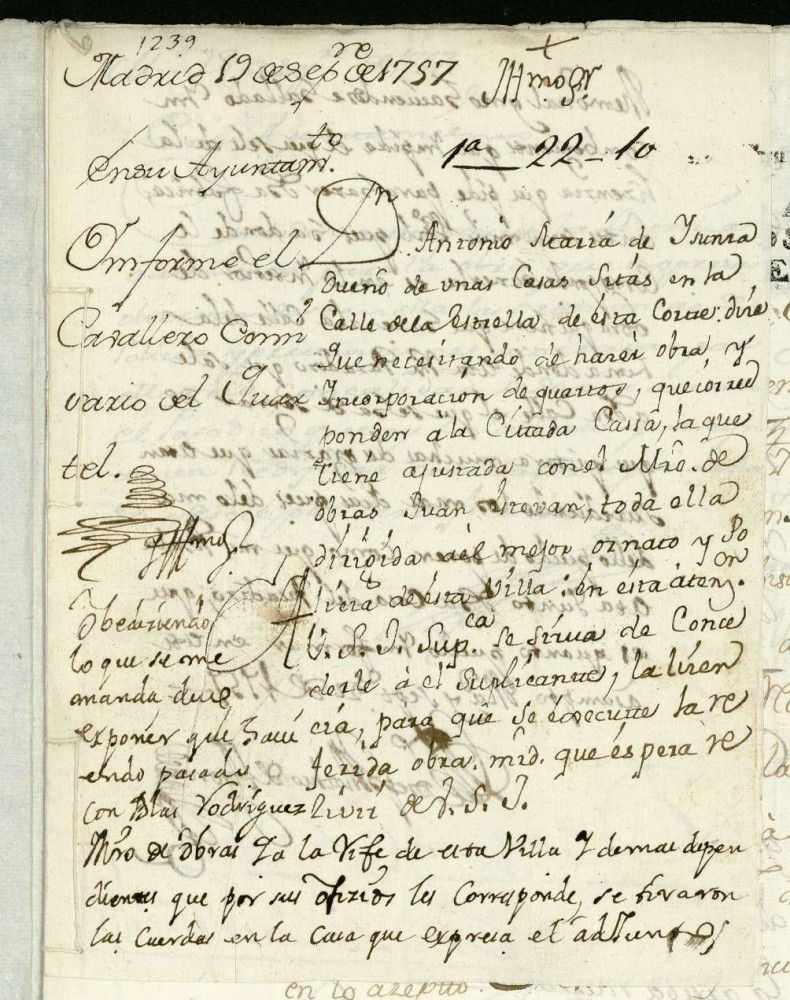 1239
Madrid 19 de Sepre de 1757
Illmo Sr
En su Ayuntamto.
1a 22-10
Informe el
Cavallero Comi
sario del Quar
tel.
Dn. Antonio Maria de Ysunza
Dueño de unas Casas Sitas en la
Calle de la Estrella de ésta Corte: dize
Que necesitando de hazer obra, y
Incorporación de quartos, que corres
ponden á la Cittada Cassa, la que
tiene ajustada con el Mro. de
obras Juan Estevan, toda ella
dirigida al mejor ornato y Po
licia de ésta Villa: en esta atenzon.
A V. S. I. Supca. se sirva de Conce
derle à el Suplicante, la lizen
cia, para que se éxecutte la re
ferida obra. mrd. que éspera re
civir de V. S. I.
Obedeziendo
lo que se me
manda devo
exponer que havi
endo pasado
con Blas Rodriguez
Mro de Obras de esta Villa y demas depen
dientes que por sus ofizios les Corresponde, se tiraron
las Cuerdas en la Casa que expresa el adjunto
en lo azepto.